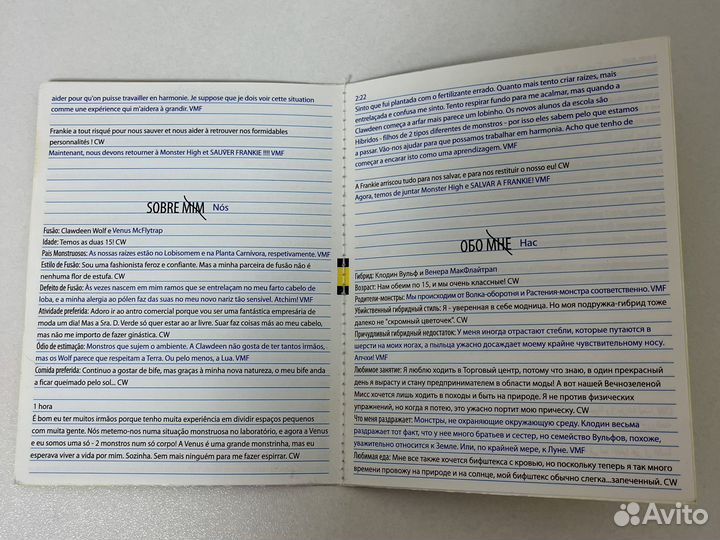 aider pour qu'on puisse travailler en harmonie. Je suppose que je dois voir cette situation
comme une expérience qui m'aidera à grandir. VMF
Frankie a tout risqué pour nous sauver et nous aider à retrouver nos formidables
personnalités ! CW
Maintenant, nous devons retourner à Monster High et SAUVER FRANKIE !!!! VMF
SOBRE MIM Nós
Fusão: Clawdeen Wolf e Venus McFlytrap
Idade: Temos as duas 15! CW
Pais Monstruosos: As nossas raízes estão no Lobisomem e na Planta Carnívora, respetivamente. VMF
Estilo de Fusão: Sou uma fashionista feroz e confiante. Mas a minha parceira de fusão não é
nenhuma flor de estufa. CW
Defeito de Fusão: Às vezes nascem em mim ramos que se entrelaçam no meu farto cabelo de
loba, e a minha alergia ao pólen faz das suas no meu novo nariz tão sensível. Atchim! VMF
Atividade preferida: Adoro ir ao antro comercial porque vou ser uma fantástica empresária de
moda um dia! Mas a Sra. D. Verde só quer estar ao ar livre. Suar faz coisas más ao meu cabelo,
mas não me importo de fazer ginástica. CW
Ódio de estimação: Monstros que sujem o ambiente. A Clawdeen não gosta de ter tantos irmãos,
mas os Wolf parece que respeitam a Terra. Ou pelo menos, a Lua. VMF
Comida preferida: Continuo a gostar de bife, mas graças à minha nova natureza, o meu bife anda
a ficar queimado pelo sol... CW
1 hora
É bom eu ter muitos irmãos porque tenho muita experiência em dividir espaços pequenos
com muita gente. Nós metemo-nos numa situação monstruosa no laboratório, e agora a Venus
e eu somos uma só - 2 monstros num só corpo! A Venus é uma grande monstrinha, mas eu
esperava viver a vida por mim. Sozinha. Sem mais ninguém para me fazer espirrar. CW
2:22
Sinto que fui plantada com o fertilizante errado. Quanto mais tento criar raízes, mais
entrelaçada e confusa me sinto. Tento respirar fundo para me acalmar, mas quando a
Clawdeen começa a arfar mais parece um lobinho. Os novos alunos da escola são
Híbridos - filhos de 2 tipos diferentes de monstros - por isso eles sabem pelo que estamos
a passar. Vão-nos ajudar para que possamos trabalhar em harmonia. Acho que tenho de
começar a encarar isto como uma aprendizagem. VMF
A Frankie arriscou tudo para nos salvar, e para nos restituir o nosso eu! CW
Agora, temos de juntar Monster High e SALVAR A FRANKIE! VMF
ОБО МНЕ Нас
Гибрид: Клодин Вульф и Венера МакФлайтрап
Возраст: Нам обеим по 15, и мы очень классные! CW
Родители-монстры: Мы происходим от Волка-оборотня и Растения-монстра соответственно. VMF
Убийственный гибридный стиль: Я - уверенная в себе модница. Но моя подружка-гибрид тоже
далеко не "скромный цветочек". CW
Причудливый гибридный недостаток: У меня иногда отрастают стебли, которые путаются в
шерсти на моих ногах, а пыльца ужасно досаждает моему крайне чувствительному носу.
Апчхи! VMF
Любимое занятие: Я люблю ходить в Торговый центр, потому что знаю, в один прекрасный
день я вырасту и стану предпринимателем в области моды! А вот нашей Вечнозеленой
Мисс хочется лишь ходить в походы и быть на природе. Я не против физических
упражнений, но когда я потею, это ужасно портит мою прическу. CW
Что меня раздражает: Монстры, не охраняющие окружающую среду. Клодин весьма
раздражает тот факт, что у нее много братьев и сестер, но семейство Вульфов, похоже,
уважительно относится к Земле. Или, по крайней мере, к Луне. VMF
Любимая еда: Мне все также хочется бифштекса с кровью, но поскольку теперь я так много
времени провожу на природе и на солнце, мой бифштекс обычно слегка...запеченный. CW
Avito